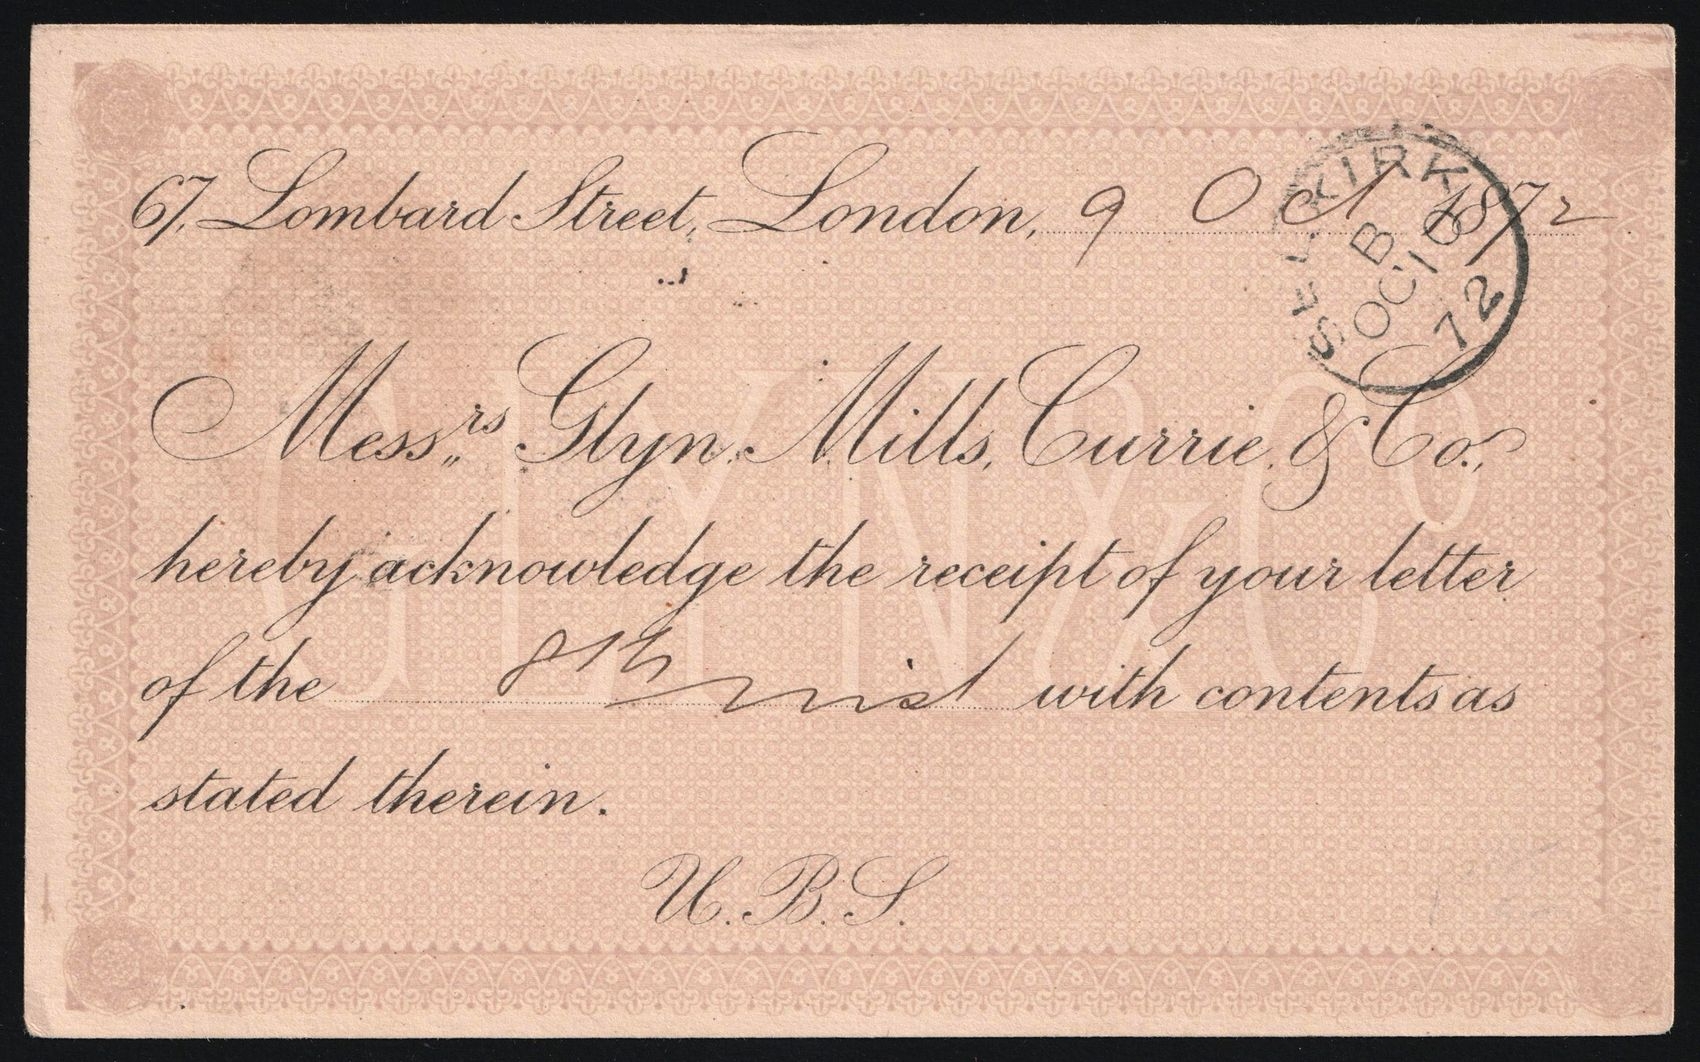 67, Lombard Street, London, 9 Oct 1872
SELKIRK
B
OC 10
72
Mess,,rs Glyn, Mills, Currie, & Co.,
GLYN & Co
hereby acknowledge the receipt of your letter
of the 8th inst with contents as
stated therein.
U.B.S.